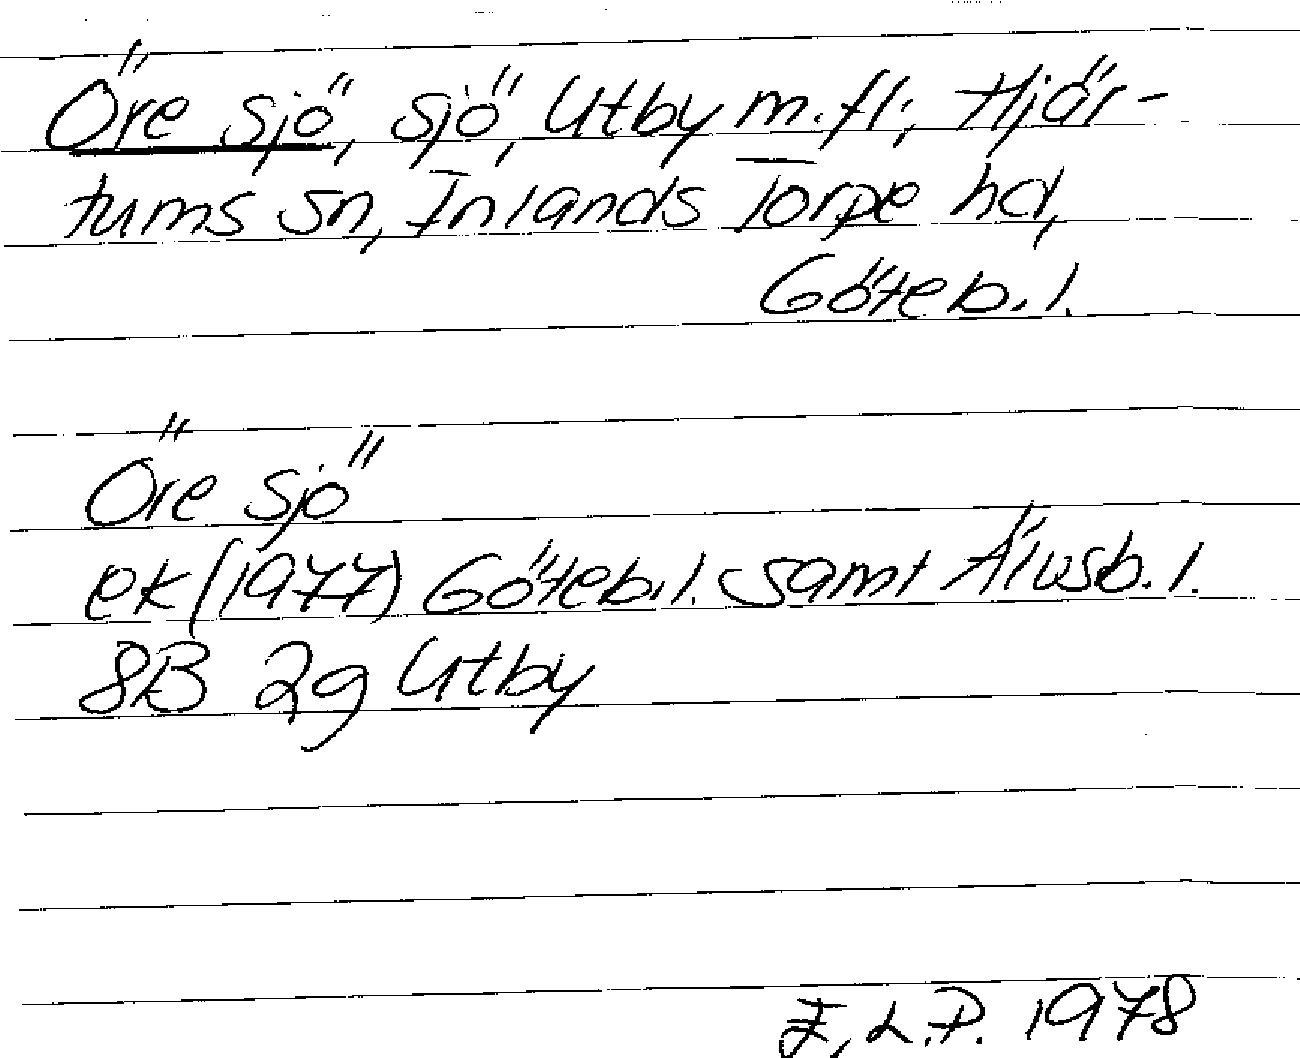 Öre sjö, sjö, Utby m.fl., Hjär-
tums sn, Inlands Torpe hd,
Göteb.l.
Öre sjö
ek (1977) Göteb.l. samt Älvsb.l.
8B 2g Utby
F.L.P. 1978